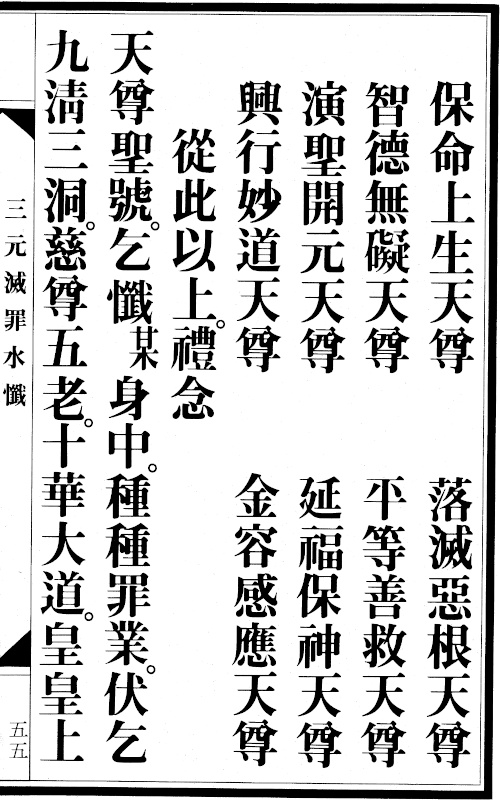 保命上生天尊　落滅惡根天尊
智德無礙天尊　平等善救天尊
演聖開元天尊　延福保神天尊
興行妙道天尊　金容感應天尊
從此以上。禮念
天尊聖號。乞懺某身中。種種罪業。伏乞
九清三洞。慈尊五老。十華大道。皇皇上
三元滅罪水懺
五五